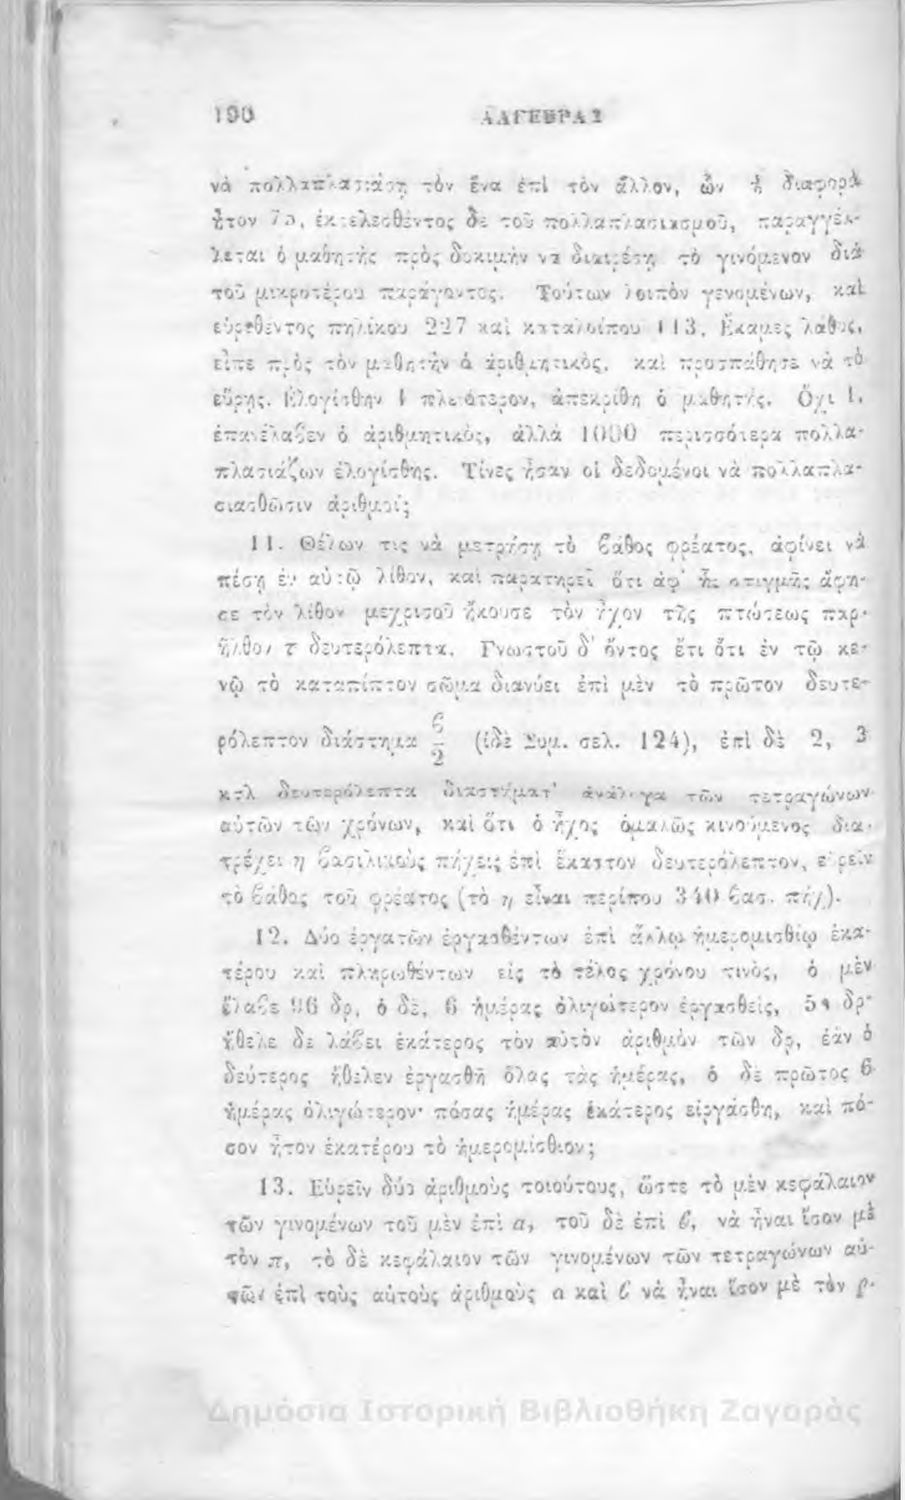 190 ΑΛΓΕΒΡΑΣ
νὰ πολλαπλασιάσῃ τὸν ἕνα ἐπὶ τὸν ἄλλον, ὧν ἡ διαφορὰ
ἦτον 75, ἐκτελεσθέντος δὲ τοῦ πολλαπλασιασμοῦ, παραγγέλ-
λεται ὁ μαθητὴς πρὸς δοκιμὴν νὰ διαιρέσῃ τὸ γινόμενον διὰ
τοῦ μικροτέρου παράγοντος. Τούτων λοιπὸν γενομένων, καὶ
εὑρεθέντος πηλίκου 227 καὶ καταλοίπου 113, Ἔκαμες λάθος,
εἶπε πρὸς τὸν μαθητὴν ὁ ἀριθμητικὸς, καὶ προσπάθησε νὰ τὸ
εὕρῃς. Ἐλογίσθην 1 πλειότερον, ἀπεκρίθη ὁ μαθητής. Ὄχι 1,
ἐπανέλαβεν ὁ ἀριθμητικὸς, ἀλλὰ 1000 περισσότερα πολλα-
πλασιάζων ἐλογίσθης. Τίνες ἦσαν οἱ δεδομένοι νὰ πολλαπλα-
σιασθῶσιν ἀριθμοί;
11. Θέλων τις νὰ μετρήσῃ τὸ βάθος φρέατος, ἀφίνει νὰ
πέσῃ ἐν αὐτῷ λίθον, καὶ παρατηρεῖ ὅτι ἀφ' ἧς στιγμῆς ἄφη-
σε τὸν λίθον μεχρισοῦ ἤκουσε τὸν ἦχον τῆς πτώσεως παρ-
ῆλθον τ δευτερόλεπτα. Γνωστοῦ δ' ὄντος ἔτι ὅτι ἐν τῷ κε-
νῷ τὸ καταπίπτον σῶμα διανύει ἐπὶ μὲν τὸ πρῶτον δευτε-
ρόλεπτον διάστημα ϐ/2 (ἰδὲ Συμ. σελ. 124), ἐπὶ δὲ 2, 3
κτλ δευτερόλεπτα διαστήματ' ἀνάλογα τῶν τετραγώνων
αὐτῶν τῶν χρόνων, καὶ ὅτι ὁ ἦχος ὁμαλῶς κινούμενος δια-
τρέχει η βασιλικοὺς πήχεις ἐπὶ ἕκαστον δευτερόλεπτον, εὑρεῖν
τὸ βάθος τοῦ φρέατος (τὸ η εἶναι περίπου 340 βασ. πήχ).
12. Δύο ἐργατῶν ἐργασθέντων ἐπὶ ἄλλῳ ἡμερομισθίῳ ἑκα-
τέρου καὶ πληρωθέντων εἰς τὸ τέλος χρόνου τινὸς, ὁ μὲν
ἔλαβε 96 δρ, ὁ δὲ, 6 ἡμέρας ὀλιγώτερον ἐργασθεὶς, 54 δρ·
ἤθελε δὲ λάβει ἑκάτερος τὸν αὐτὸν ἀριθμὸν τῶν δρ, ἐὰν ὁ
δεύτερος ἤθελεν ἐργασθῆ ὅλας τὰς ἡμέρας, ὁ δὲ πρῶτος 6
ἡμέρας ὀλιγώτερον· πόσας ἡμέρας ἑκάτερος εἰργάσθη, καὶ πό-
σον ἦτον ἑκατέρου τὸ ἡμερομίσθιον;
13. Εὑρεῖν δύο ἀριθμοὺς τοιούτους, ὥστε τὸ μὲν κεφάλαιον
τῶν γινομένων τοῦ μὲν ἐπὶ α, τοῦ δὲ ἐπὶ ϐ, νὰ ἦναι ἴσον μὲ
τὸν π, τὸ δὲ κεφάλαιον τῶν γινομένων τῶν τετραγώνων αὐ-
τῶν ἐπὶ τοὺς αὐτοὺς ἀριθμοὺς α καὶ ϐ νὰ ἦναι ἴσον μὲ τὸν ρ.
Δημόσια Ιστορική Βιβλιοθήκη Ζαγοράς